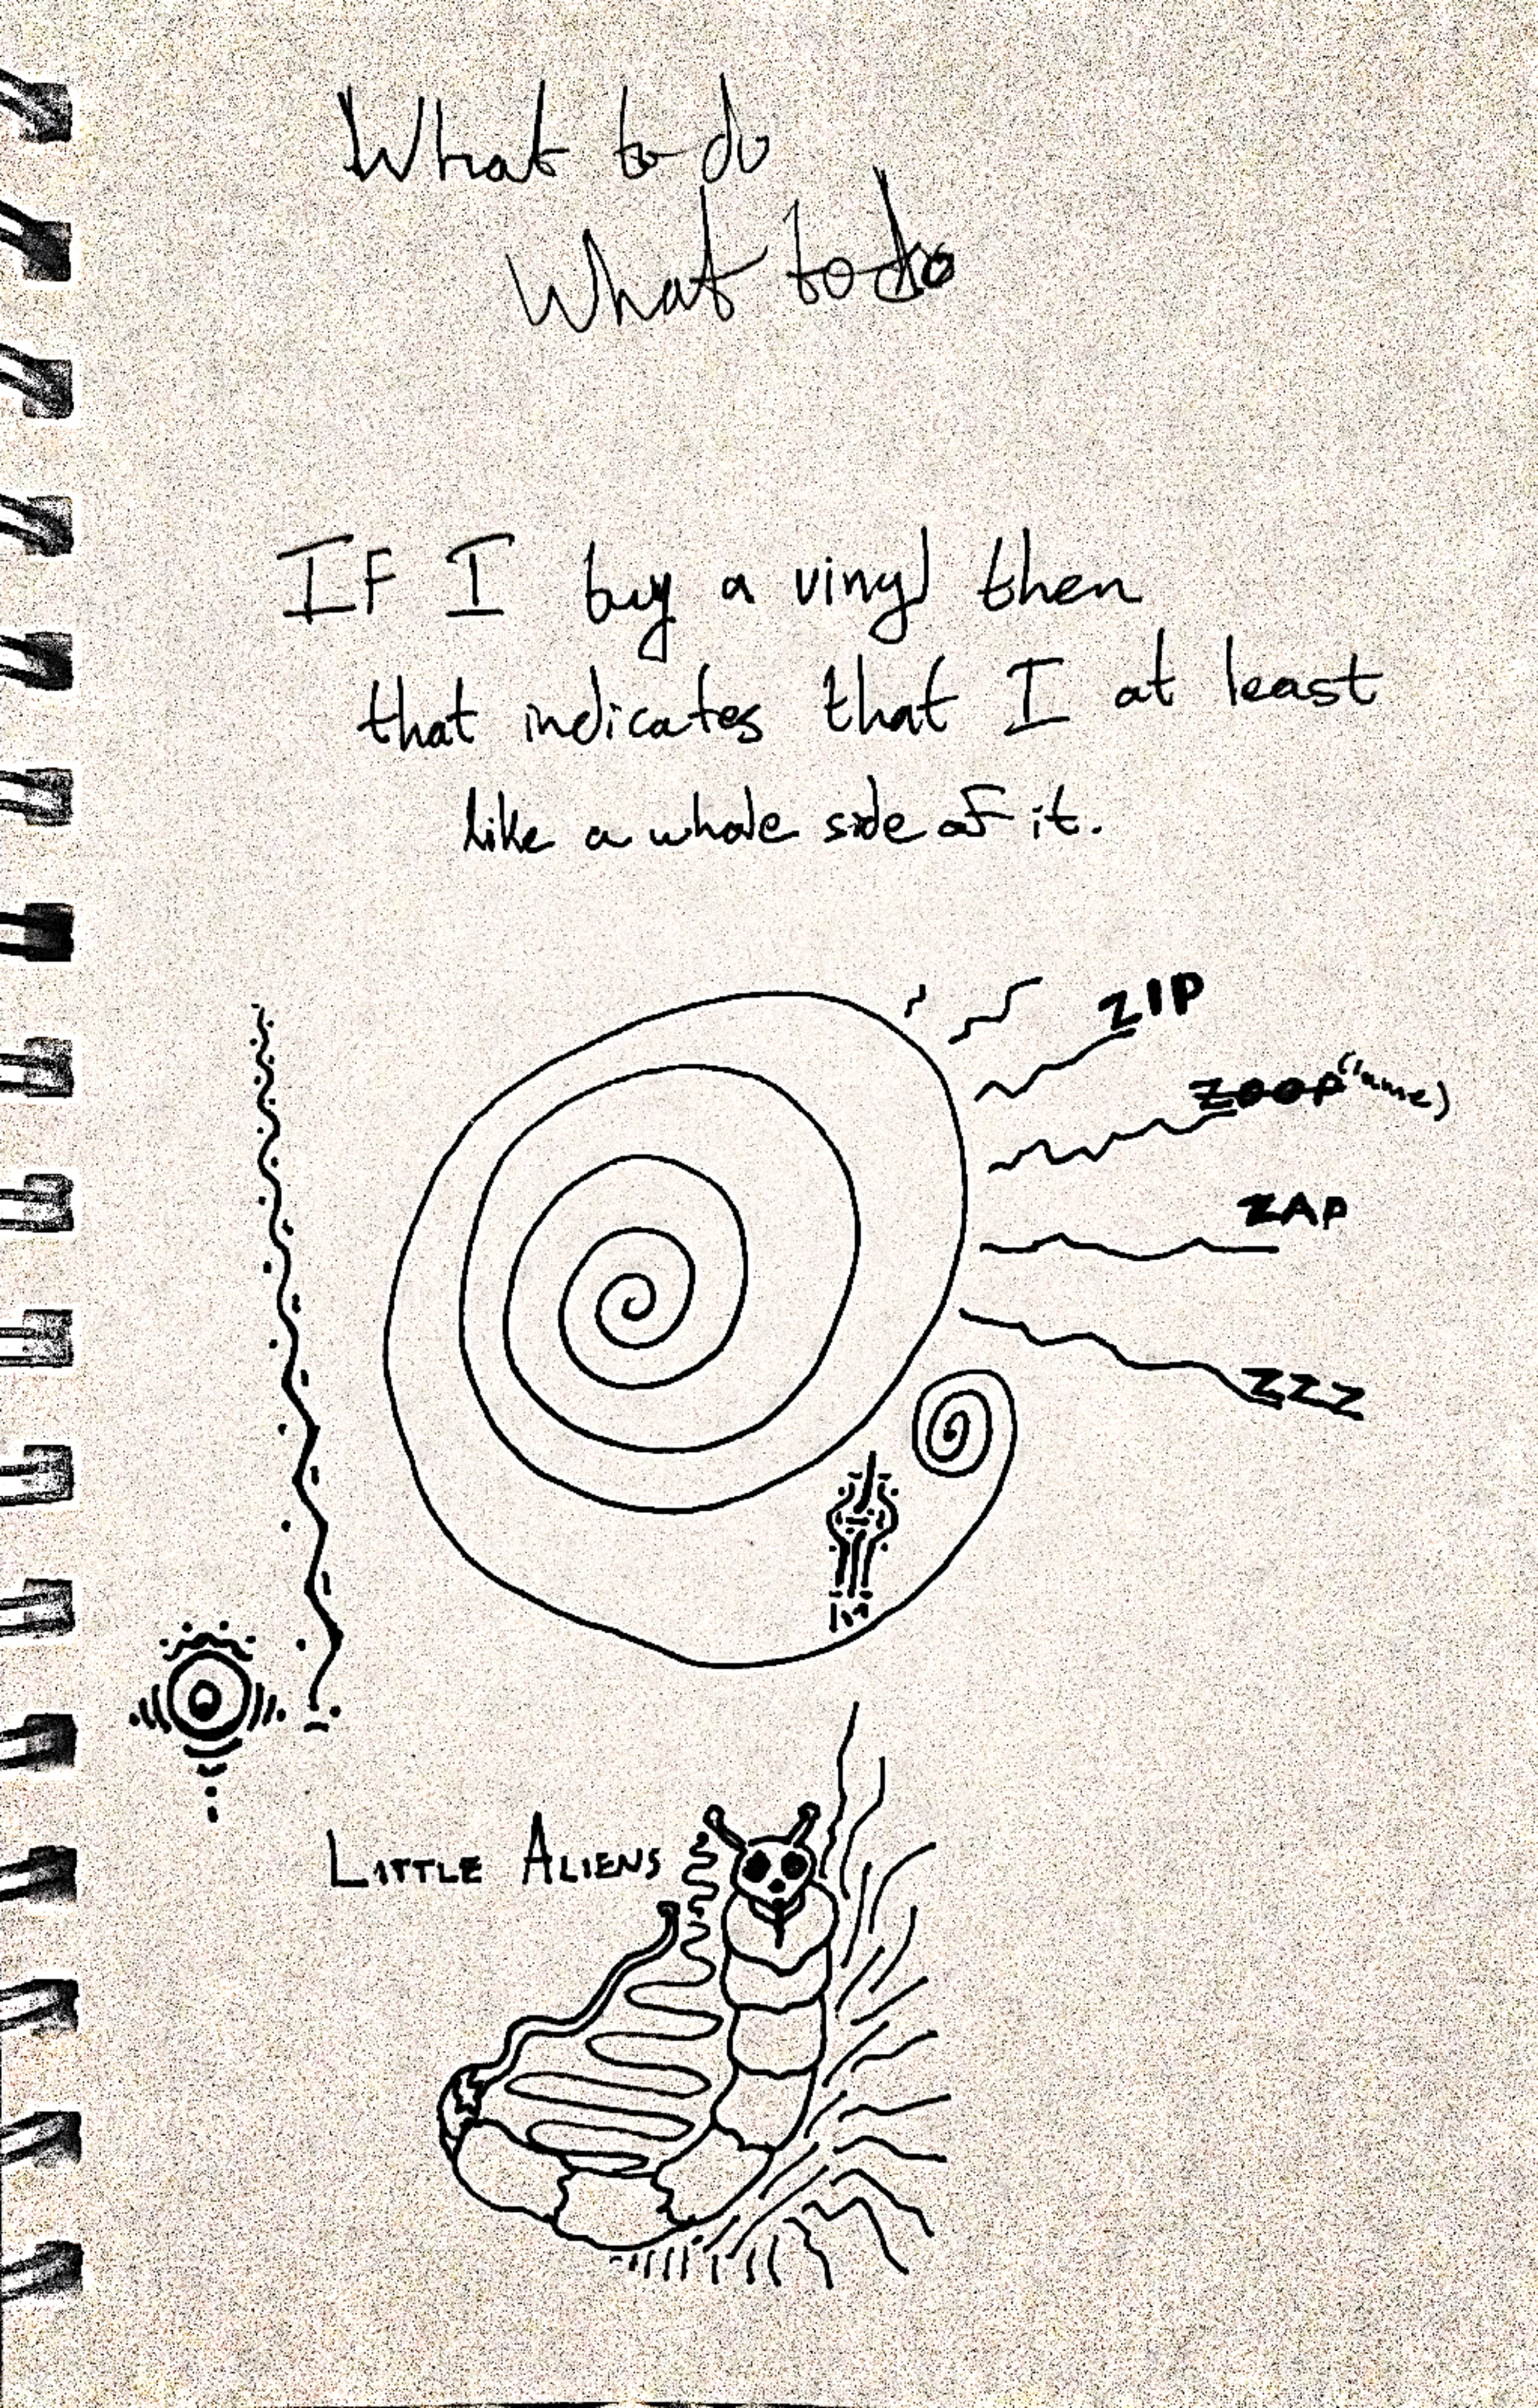 What to do
What to do
IF I buy a vinyl then
that indicates that I at least
like a whole side of it.
ZIP
ZOOP (lame)
ZAP
ZZZ
LITTLE ALIENS